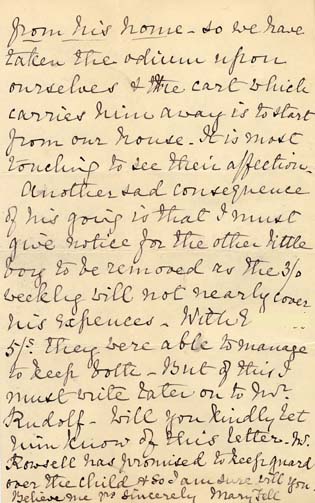 from his home - so we have
taken the odium upon
ourselves & the cart which
carries him away is to start
from our house. It is most
touching to see their affection.
Another sad consequence
of his going is that I must
give notice for the other little
boy to be removed as the 3/0
weekly will not nearly cover
his expences - With
5/s they were able to manage
to keep both - But of this I
must write later on to Mr.
Rudolf - Will you kindly let
him know of this letter - Mr.
Rowsell has promised to keep guard
over the child & so I am sure will you.
Believe me yrs sincerely Mary Fell